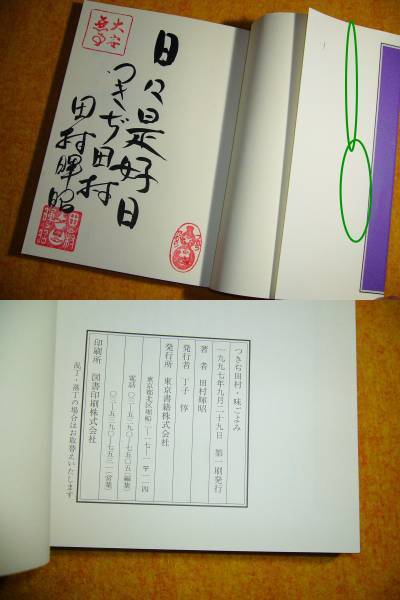 大安
無事
日々是好日
つきぢ田村
田村暉昭
つきぢ田村・味ごよみ
一九九七年九月二十九日 第一刷発行
著者 田村暉昭
発行者 丁子 惇
発行所 東京書籍株式会社
東京都北区堀船二―一七―一 〒一一四
電話 〇三―五三九〇―七五〇五(編集)
〇三―五三九〇―七五三一(営業)
印刷所 図書印刷株式会社
乱丁・落丁の場合はお取替えいたします